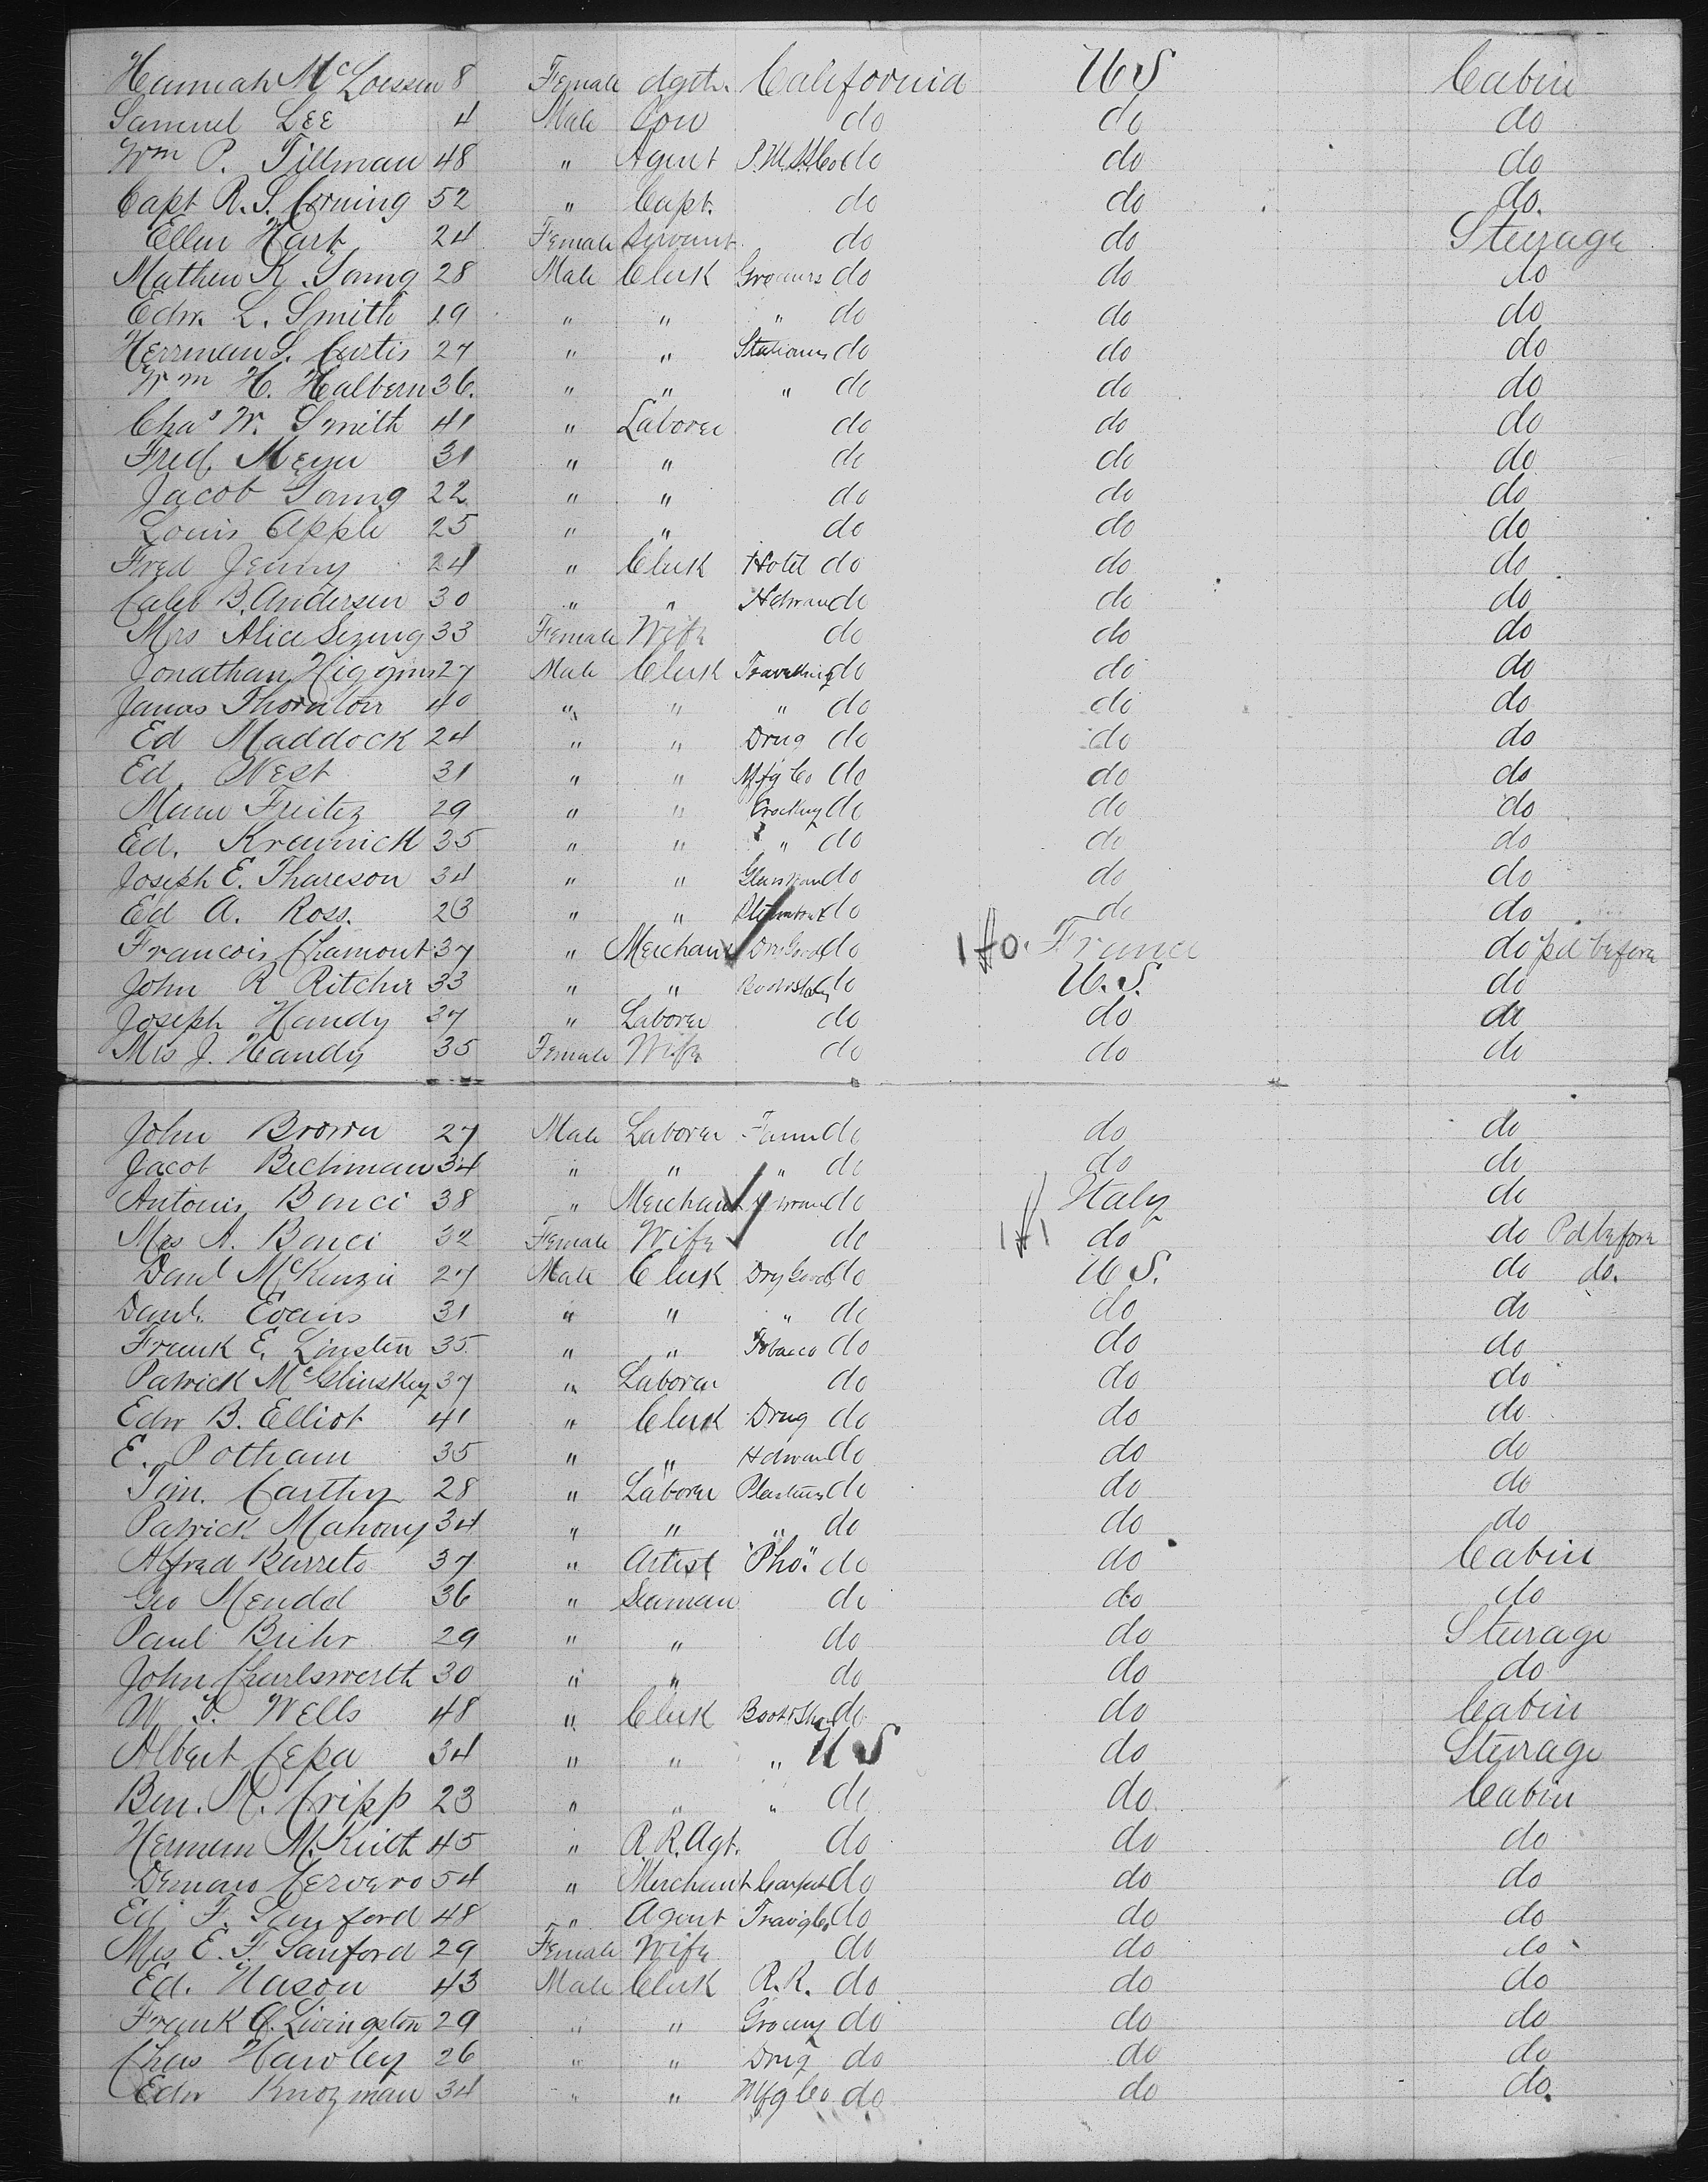 Hannah McLoessen 8 Female dgtr. California US Cabin
Samuel Lee 4 Male Son do do do
Wm P. Tillman 48 " Agent P.M.S.S.Co do do do
Capt R. S. Corning 52 " Capt. do do do.
Ellen Hart 24 Female Servant do do Steerage
Mathew K. Young 28 Male Clerk Grocers do do do
Edw. L. Smith 19 " " " do do do
Herrman S. Curtis 27 " " Stationers do do do
Wm H. Halbern 36. " " " do do do
Chas W. Smith 41 " Laborer do do do
Fred. Meyer 31 " " do do do
Jacob Young 22 " " do do do
Louis Apple 25 " " do do do
Fred Jenny 24 " Clerk Hotel do do do
Caleb B. Andersen 30 " " Hdware do do do
Mrs Alice Sezung 33 Female Wife do do do
Jonathan Higgins 27 Male Clerk Travelling do do do
James Thornton 40 " " " do do do
Ed Maddock 24 " " Drug do do do
Ed West 31 " " Mfg Co do do do
Freitez 29 " " Crockery do do do
Ed. Krewnick 35 " " " do do do
Joseph E. Thareson 34 " " Glassware do do do
Ed A. Ross. 23 " " do do do
Francois Chamont 37 " Merchant Dry Goods do 1 #0. France do pd before
John R Ritcher 33 " " do U.S. do
Joseph Handy 37 " Laborer do do do
Mrs J. Handy 35 Female Wife do do do
John Brown 27 Male Laborer Farm do do do
Jacob Bechman 34 " " " do do do
Antonio Benci 38 " Merchant Hdware do Italy do
Mrs A. Benci 32 Female Wife do 1#1 do do Pd before
Danl McKenzie 27 Male Clerk Dry Goods do US. do do.
Danl. Evans 31 " " " do do do
Frank E. Linsten 35 " " Tobacco do do do
Patrick McClinskey 37 " Laborer do do do
Edw B. Elliot 41 " Clerk Drug do do do
E. Potham 35 " " Hdware do do do
Tim. Carthy 28 " Laborer Plasterers do do do
Patrick Mahony 34 " " " do do do
Alfred Barreto 37 " Artist "Pho." do do Cabin
Geo Mendel 36 " Seaman do do do
Paul Brihr 29 " " do do Steerage
John Charlsworth 30 " " do do do
W. S. Wells 48 " Clerk Boot & Shoe do do Cabin
Albert Cepa 34 " " " US do Steerage
Ben. M. Cripp 23 " " " do do. Cabin
Hermem M. Knilt 45 " R.R. Agt. do do do
Demaro Cervero 54 " Merchant Carpet do do do
Ed F. Sanford 48 " Agent do do do
Mrs E. F. Sanford 29 Female Wife do do do
Ed. Nason 43 Male Clerk R.R. do do do
Frank A. Livingston 29 " " Grocery do do do
Chas Hawley 26 " " Drug do do do
Edw Knozman 34 " " Mfg Co do do do.